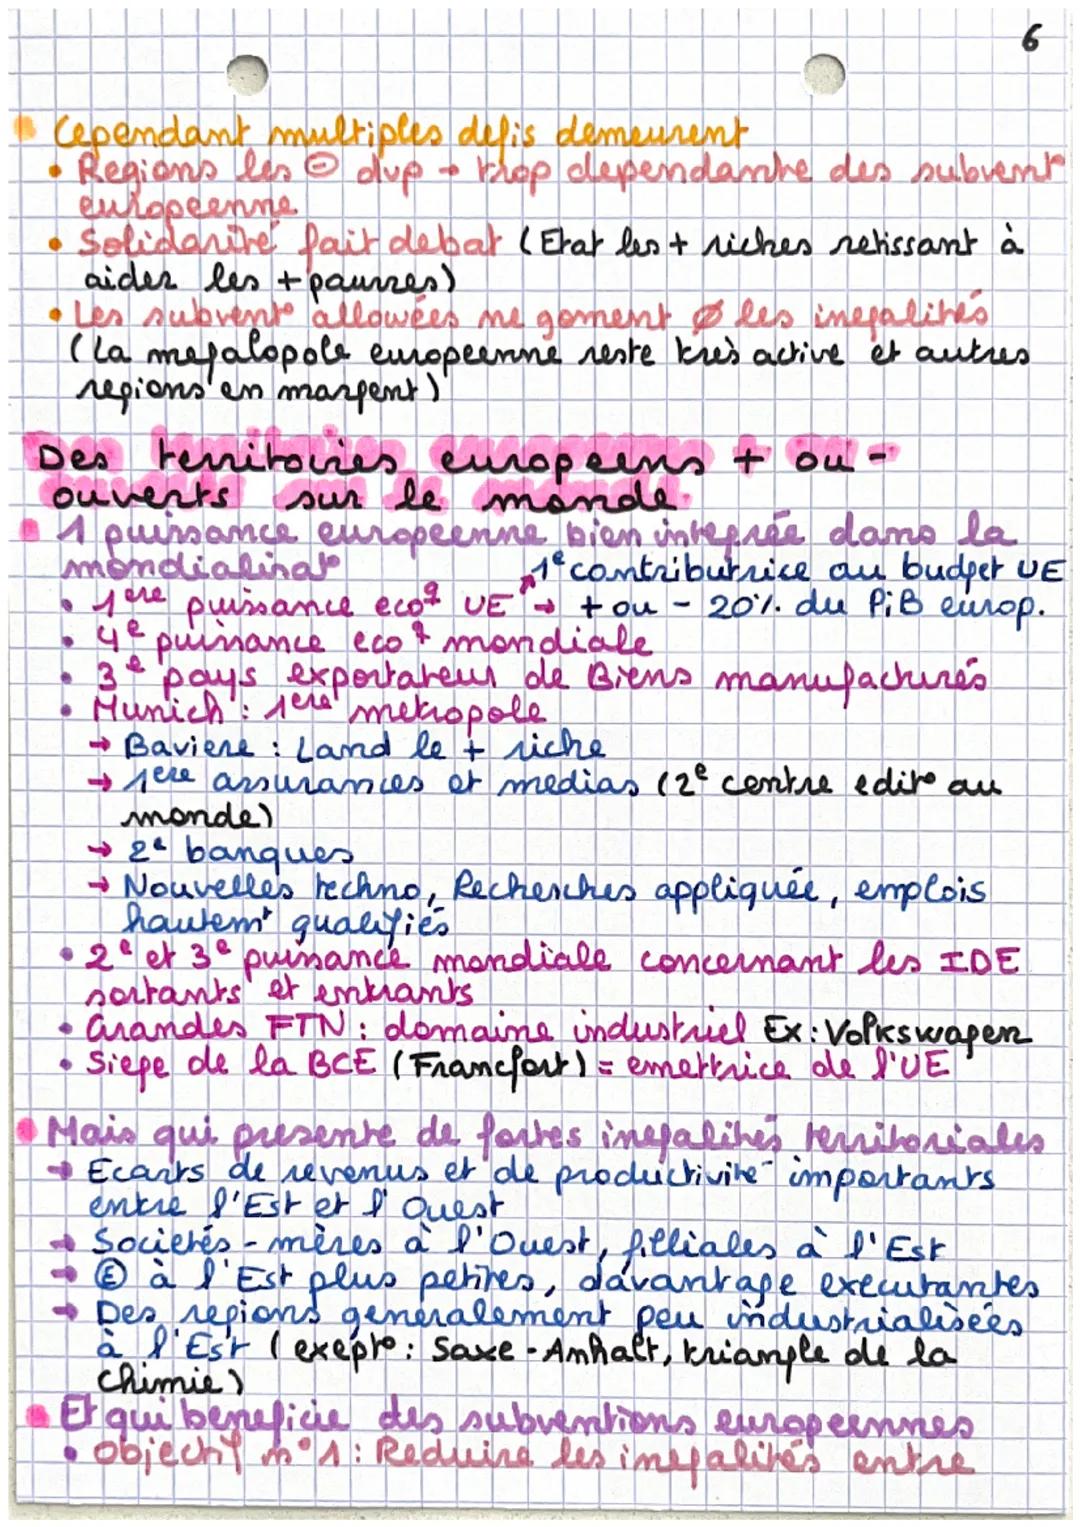 6
Cependant multiples défis demeurent
• Regions les ⊖ dvp → trop dependante des subvent°
européenne
• Solidarité fait debat (Etat les + riches retissant à
aider les + pauvres)
• Les subvent° allowées ne goment Ø les inegalités
(la megalopole européenne reste très active et autres
regions en margent)
Des territoires europeens + ou -
ouverts sur le monde
1 puissance européenne bien integrée dans la
mondialisat°
1e contributrice au budget UE
• 1ere puissance ecoq UE → + ou - 20% du PiB europ.
• 4e puissance ecoq mondiale
• 3e pays exportateur de Biens manufacturés
• Munich : 1ere metropole
→ Baviere : Land le + riche
→ 1ere assurances et medias (2e centre edit° au
monde)
→ 2e banques
→ Nouvelles techno, Recherches appliquée, emplois
hautemt qualifiés
• 2e et 3e puissance mondiale concernant les IDE
sortants et entrants
• Grandes FTN : domaine industriel Ex : Volkswagen
• Siege de la BCE (Francfort) = emettrice de l'UE
Mais qui presente de fortes inegalités territoriales
→ Ecarts de revenus et de productivité importants
entre l'Est et l'Ouest
→ Societés-mères à l'Ouest, filliales à l'Est
→ Ⓔ à l'Est plus petites, davantage executantes
→ Des regions generalement peu industrialisées
à l'Est (exept° : Saxe-Anhalt, triangle de la
chimie)
Et qui beneficie des subventions européennes
• Objectif n°1 : Reduire les inegalités entre